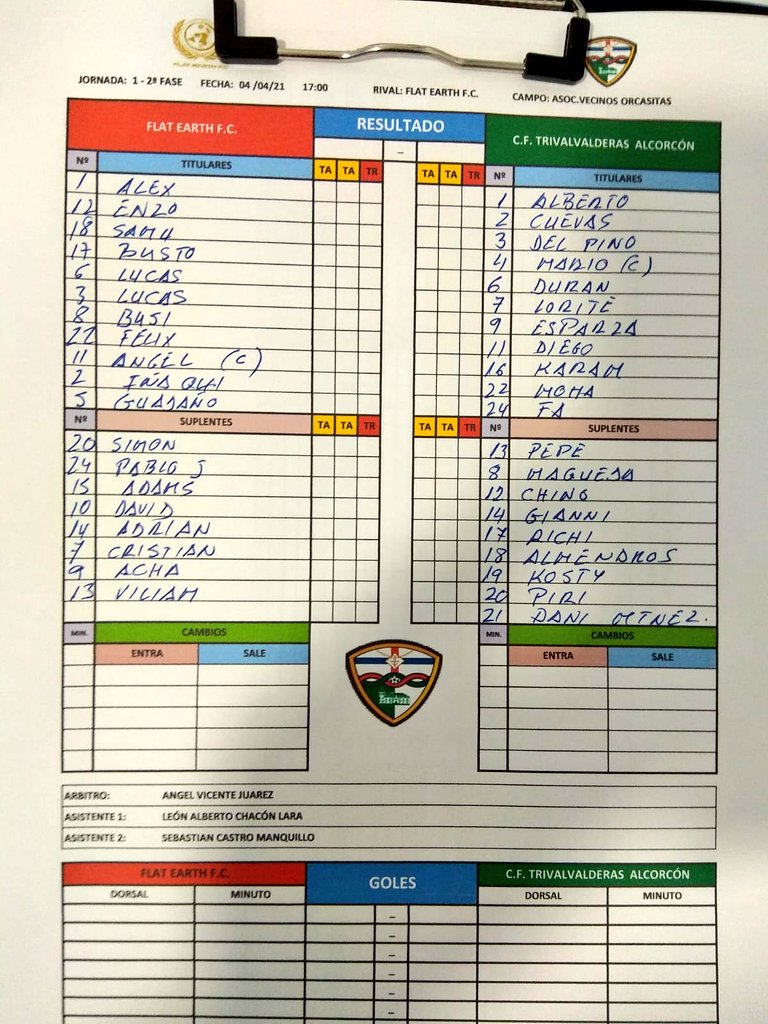 FLAT EARTH FC
JORNADA: 1 - 2ª FASE FECHA: 04/04/21 17:00 RIVAL: FLAT EARTH F.C. CAMPO: ASOC.VECINOS ORCASITAS
FLAT EARTH F.C. RESULTADO C.F. TRIVALVALDERAS ALCORCÓN
–
Nº TITULARES TA TA TR TA TA TR Nº TITULARES
1 ALEX 1 ALBERTO
12 ENZO 2 CUEVAS
18 SAMU 3 DEL PINO
17 BUSTO 4 MARIO (C)
6 LUCAS 6 DURAN
3 LUCAS 7 LORITE
8 BUSI 9 ESPARZA
22 FELIX 11 DIEGO
11 ANGEL (C) 16 KARAM
2 IÑAQUI 22 MOHA
5 GUADAÑO 24 FA
Nº SUPLENTES TA TA TR TA TA TR Nº SUPLENTES
20 SIMON 13 PEPE
24 PABLO J 8 MAQUEDA
15 ADAMS 12 CHINO
10 DAVID 14 GIANNI
14 ADRIAN 17 RICHI
7 CRISTIAN 18 ALMENDROS
9 ACHA 19 KOSTY
13 VILIAM 20 PIRI
21 DANI MTNEZ.
MIN. CAMBIOS MIN. CAMBIOS
ENTRA SALE ENTRA SALE
ARBITRO: ANGEL VICENTE JUAREZ
ASISTENTE 1: LEÓN ALBERTO CHACÓN LARA
ASISTENTE 2: SEBASTIAN CASTRO MANQUILLO
FLAT EARTH F.C. GOLES C.F. TRIVALVALDERAS ALCORCÓN
DORSAL MINUTO DORSAL MINUTO
–
–
–
–
–
–